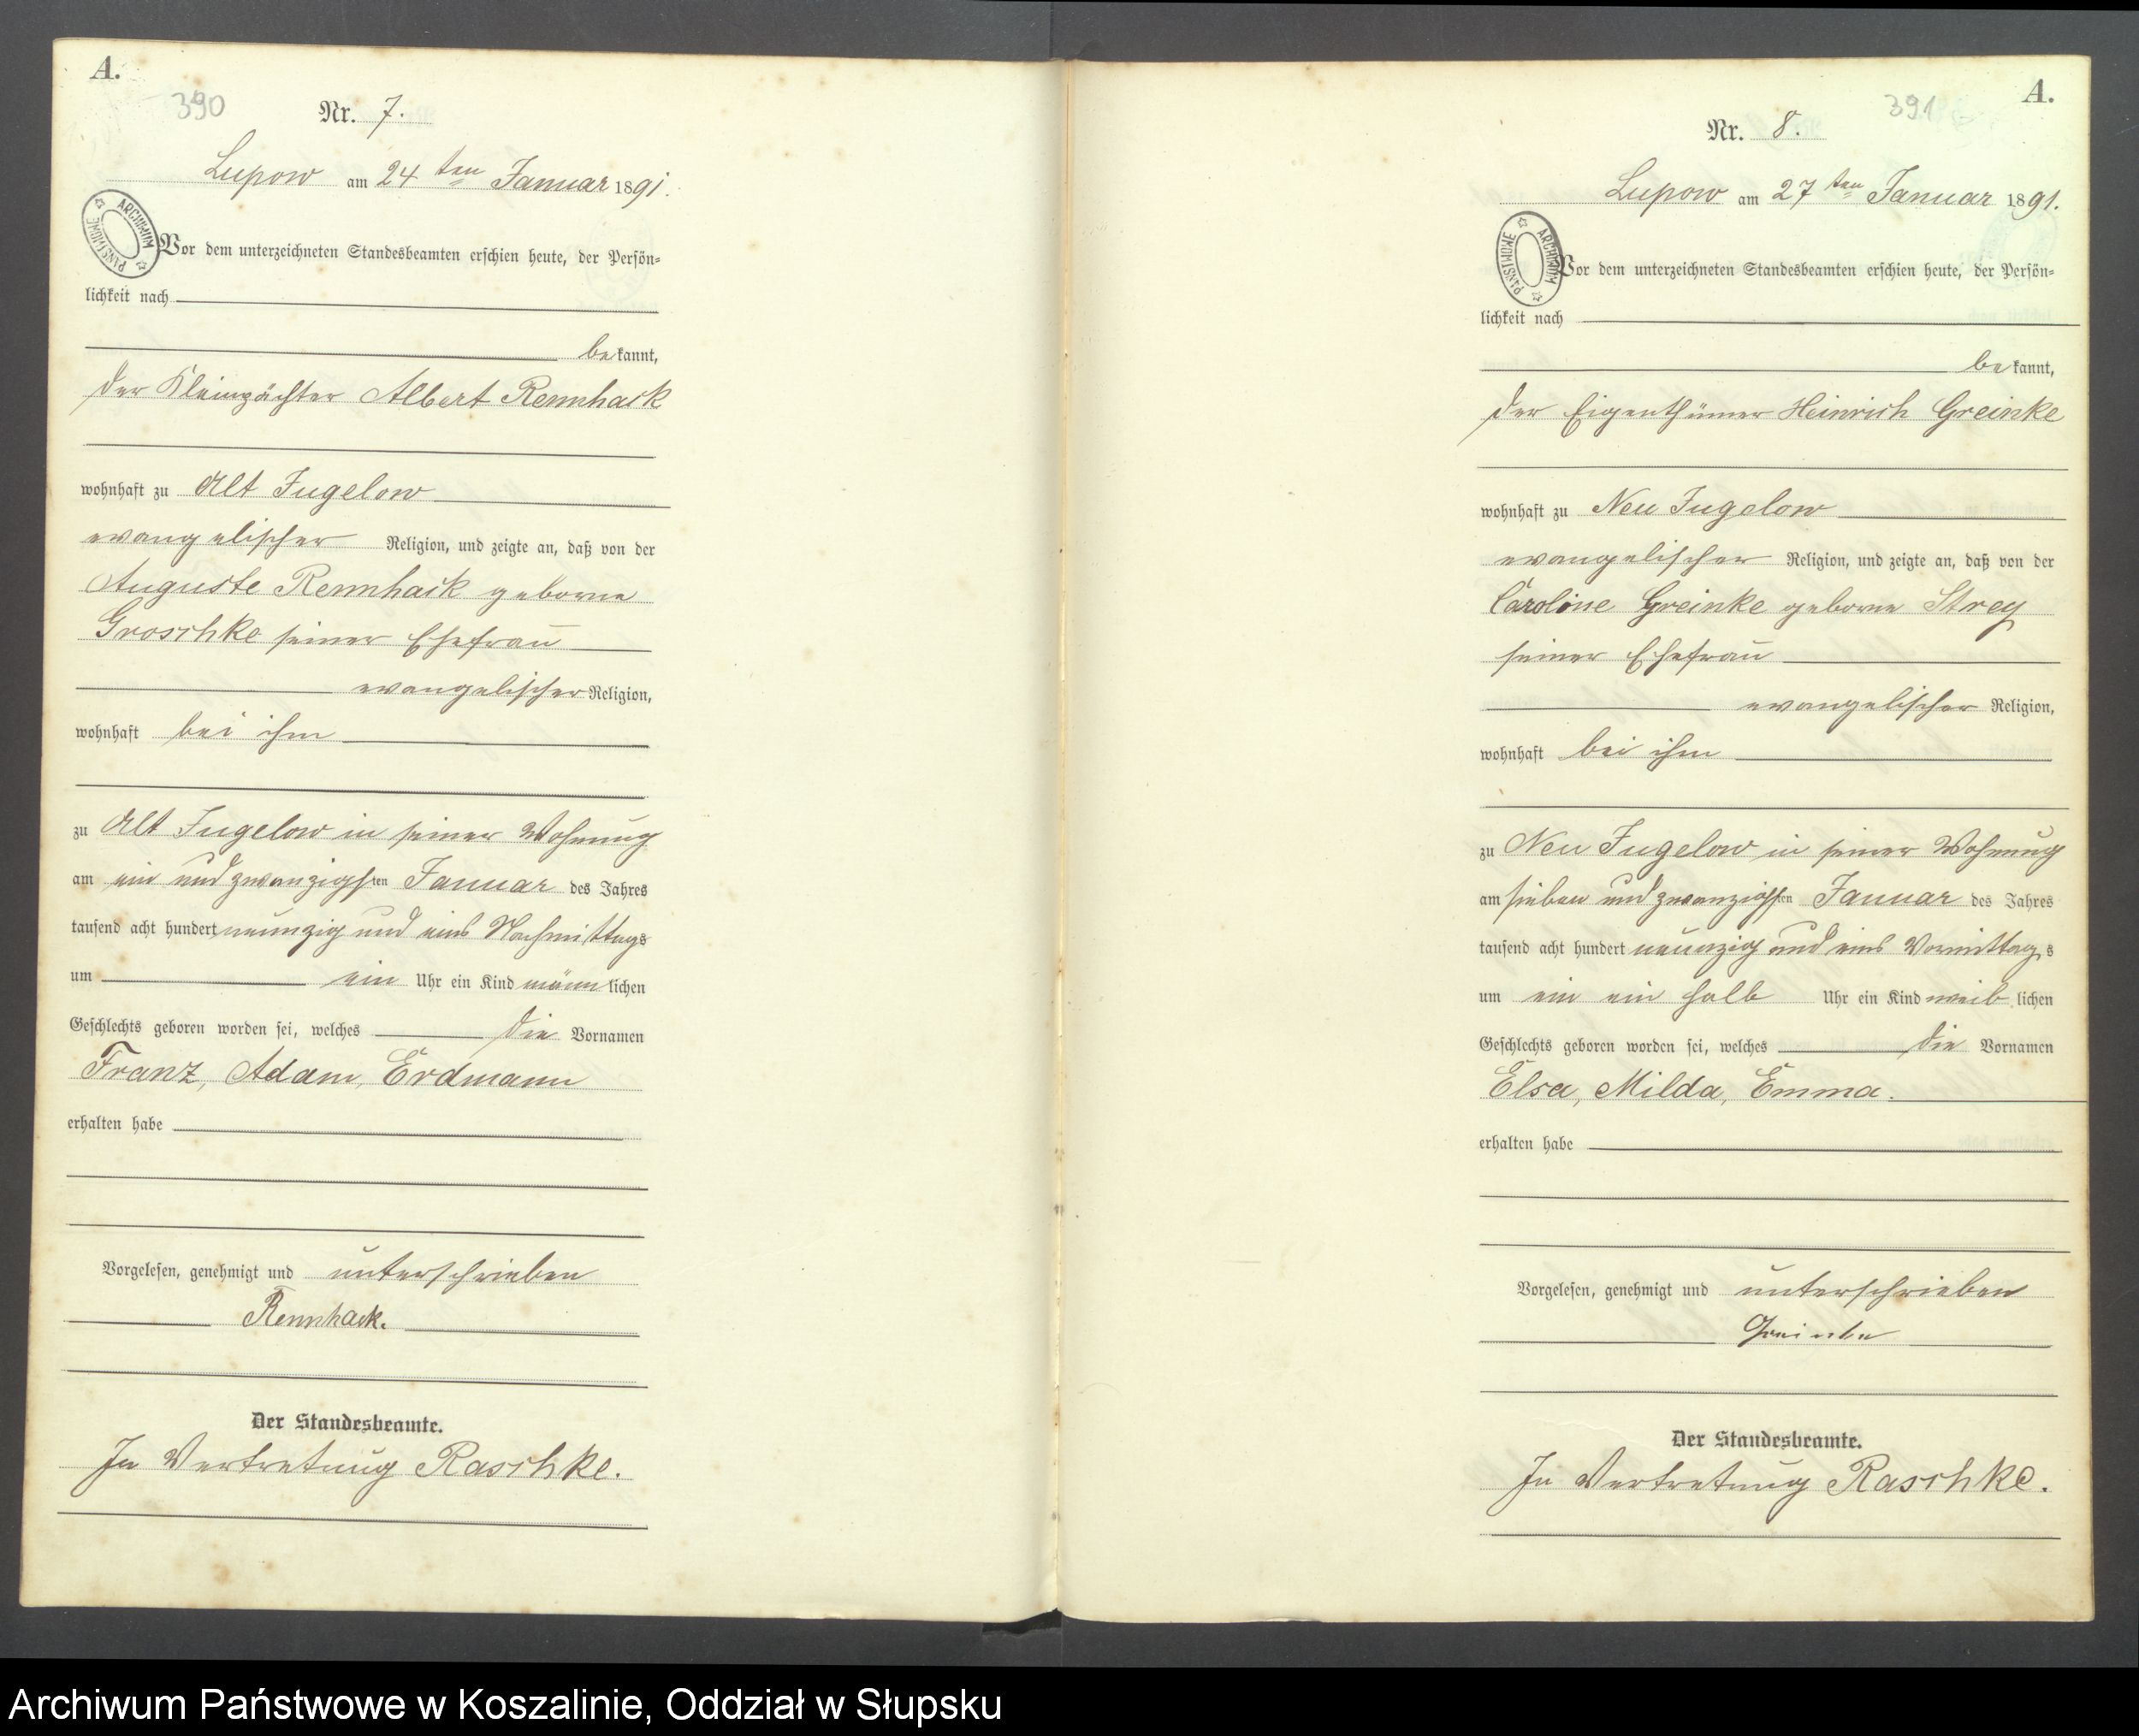 A.
390
Nr. 7.
Lupow am 24 ten Januar 1891.
ARCHIWUM PAŃSTWOWE
Vor dem unterzeichneten Standesbeamten erschien heute, der Persön=
lichkeit nach
bekannt,
der Kleinpächter Albert Rennhack
wohnhaft zu Alt Jugelow
evangelischer Religion, und zeigte an, daß von der
Auguste Rennhack geborne
Groschke seiner Ehefrau
evangelischer Religion,
wohnhaft bei ihm
zu Alt Jugelow in seiner Wohnung
am ein und zwanzigsten Januar des Jahres
tausend acht hundert neunzig und eins Nachmittags
um ein Uhr ein Kind männlichen
Geschlechts geboren worden sei, welches die Vornamen
Franz, Adam, Erdmann
erhalten habe
Vorgelesen, genehmigt und unterschrieben
Rennhack.
Der Standesbeamte.
In Vertretung Raschke.
A.
391
Nr. 8.
Lupow am 27 ten Januar 1891.
ARCHIWUM PAŃSTWOWE
Vor dem unterzeichneten Standesbeamten erschien heute, der Persön=
lichkeit nach
bekannt,
der Eigenthümer Heinrich Greinke
wohnhaft zu Neu Jugelow
evangelischer Religion, und zeigte an, daß von der
Caroline Greinke geborne Strey
seiner Ehefrau
evangelischer Religion,
wohnhaft bei ihm
zu Neu Jugelow in seiner Wohnung
am sieben und zwanzigsten Januar des Jahres
tausend acht hundert neunzig und eins Vormittags
um ein ein halb Uhr ein Kind weiblichen
Geschlechts geboren worden sei, welches die Vornamen
Elsa, Milda, Emma.
erhalten habe
Vorgelesen, genehmigt und unterschrieben
Greinke
Der Standesbeamte.
In Vertretung Raschke.
Archiwum Państwowe w Koszalinie, Oddział w Słupsku